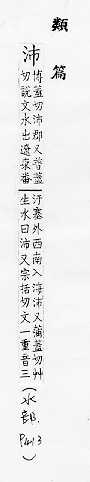 類篇
沛
博蓋切沛郡又普蓋切說文水出遼東番
汗塞外西南入海沛又蒲蓋切艸生水曰沛又宗括切文一重音三
(水部. P413)